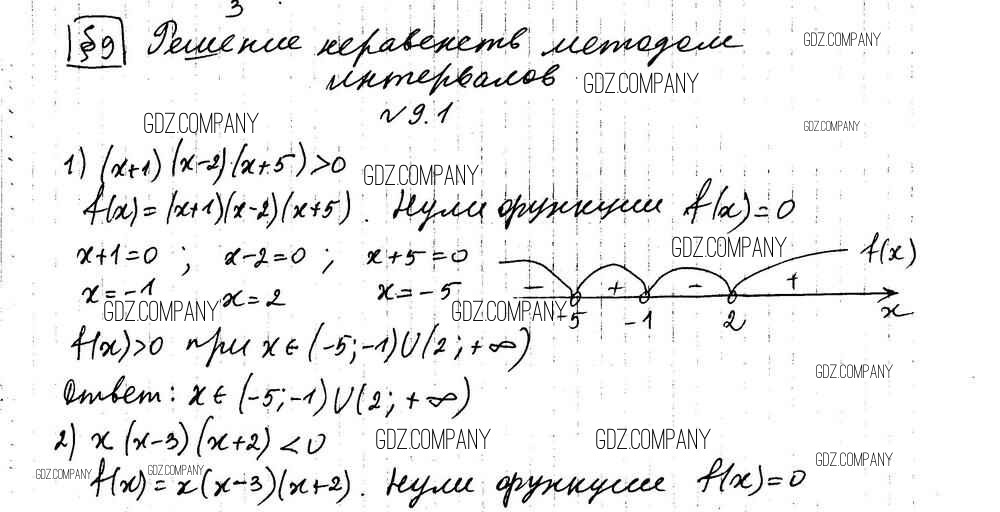 3
§9 Решение неравенств методом GDZ.COMPANY
интервалов GDZ.COMPANY
№9.1
GDZ.COMPANY GDZ.COMPANY
1) (x+1)(x-2)(x+5)>0
GDZ.COMPANY
f(x)=(x+1)(x-2)(x+5). Нули функции f(x)=0
GDZ.COMPANY
x+1=0 ; x-2=0 ; x+5=0
x=-1 x=2 x=-5
- + - + f(x)
-5 -1 2 x
GDZ.COMPANY GDZ.COMPANY
f(x)>0 при x∈(-5;-1)∪(2;+∞)
GDZ.COMPANY
Ответ: x∈(-5;-1)∪(2;+∞)
2) x(x-3)(x+2)<0
GDZ.COMPANY GDZ.COMPANY GDZ.COMPANY
GDZ.COMPANY GDZ.COMPANY
f(x)=x(x-3)(x+2). Нули функции f(x)=0